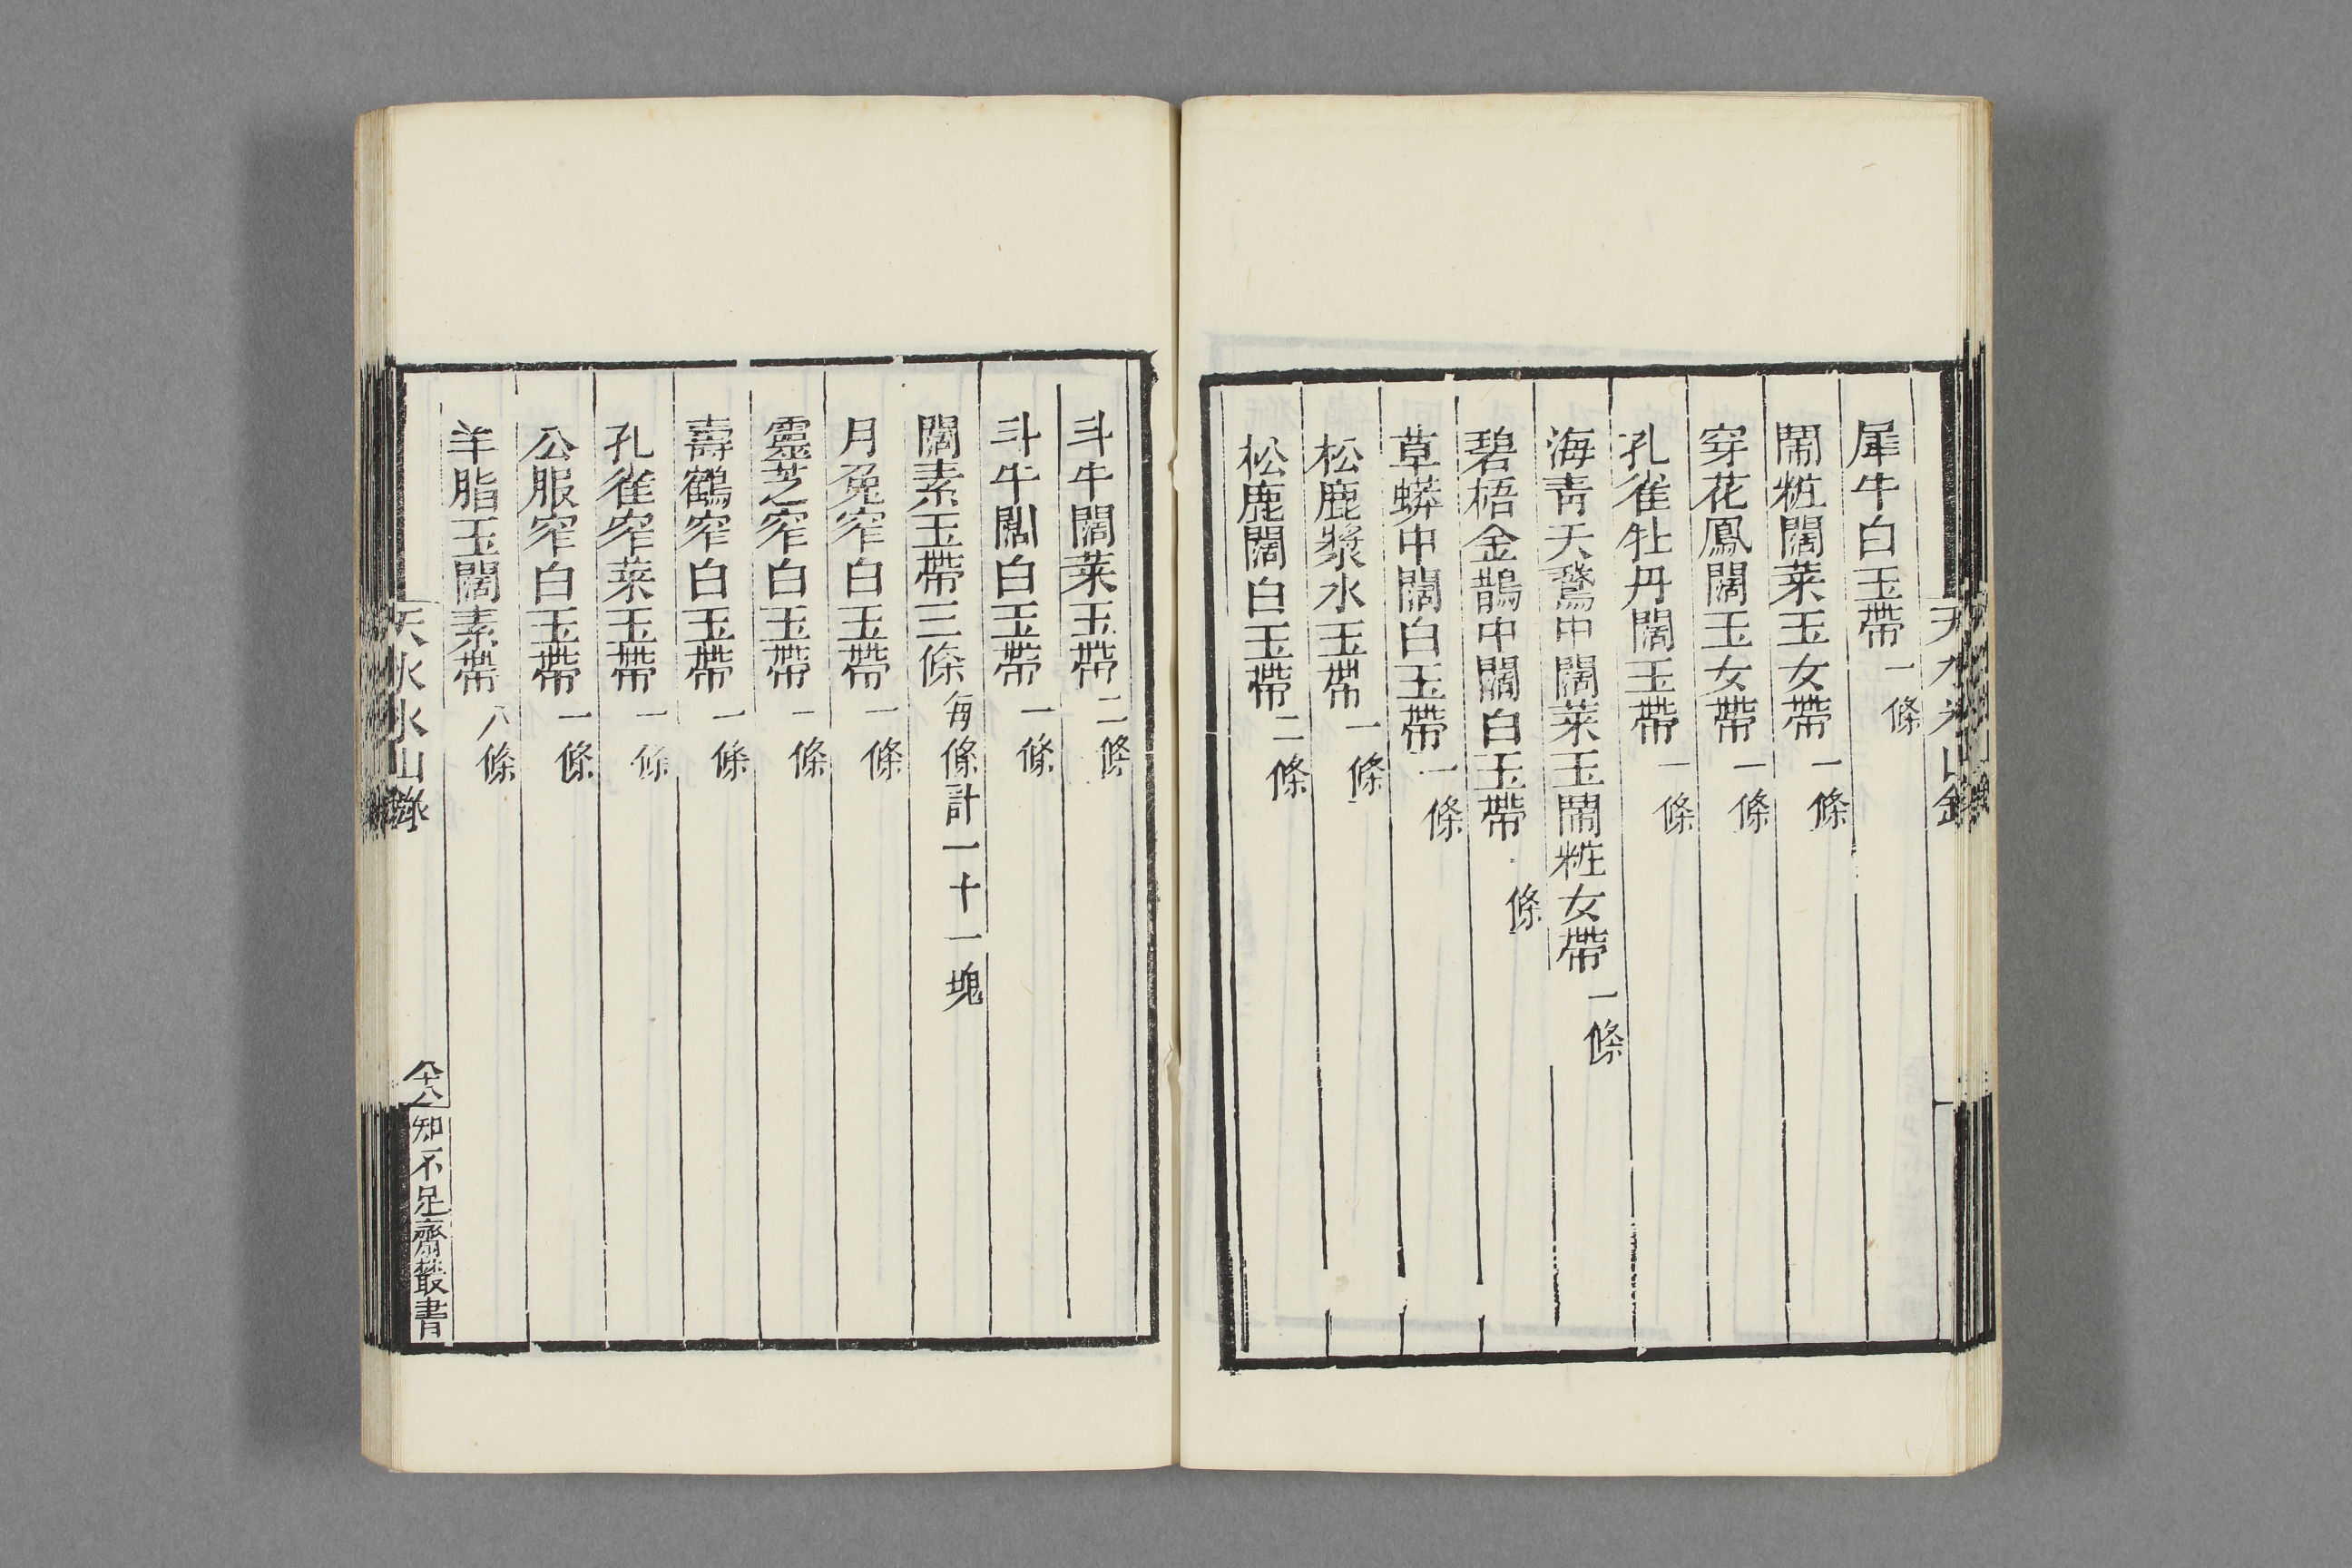 犀牛白玉帶一條
鬧粧闊菜玉女帶一條
穿花鳳闊玉女帶一條
孔雀牡丹闊玉帶一條
海青天鵞中闊菜玉鬧粧女帶一條
碧梧金鵲中闊白玉帶 條
草蟒中闊白玉帶一條
松鹿漿水玉帶一條
松鹿闊白玉帶二條
斗牛闊菜玉帶二條
斗牛闊白玉帶一條
闊素玉帶三條每條計一十一塊
月兎窄白玉帶一條
靈芝窄白玉帶一條
壽鶴窄白玉帶一條
孔雀窄菜玉帶一條
公服窄白玉帶一條
羊脂玉闊素帶八條
天水冰山錄
知不足齋叢書